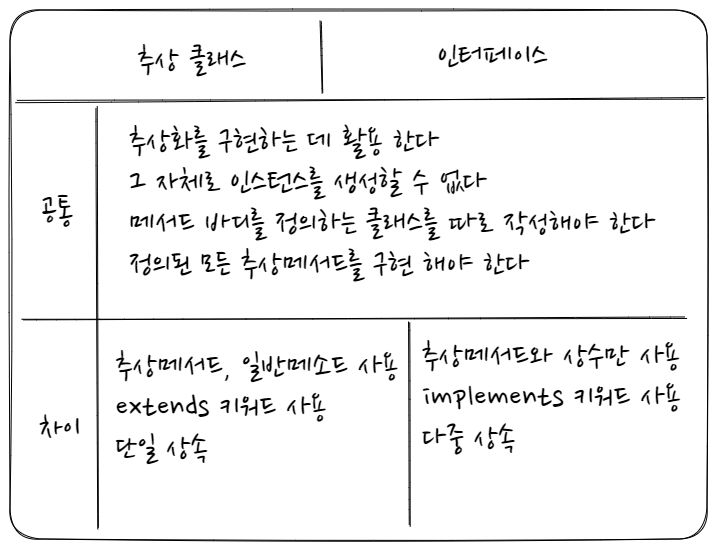 추상 클래스
인터페이스
공통
추상화를 구현하는 데 활용 한다
그 자체로 인스턴스를 생성할 수 없다
메서드 바디를 정의하는 클래스를 따로 작성해야 한다
정의된 모든 추상메서드를 구현 해야 한다
차이
추상메서드, 일반메소드 사용
extends 키워드 사용
단일 상속
추상메서드와 상수만 사용
implements 키워드 사용
다중 상속